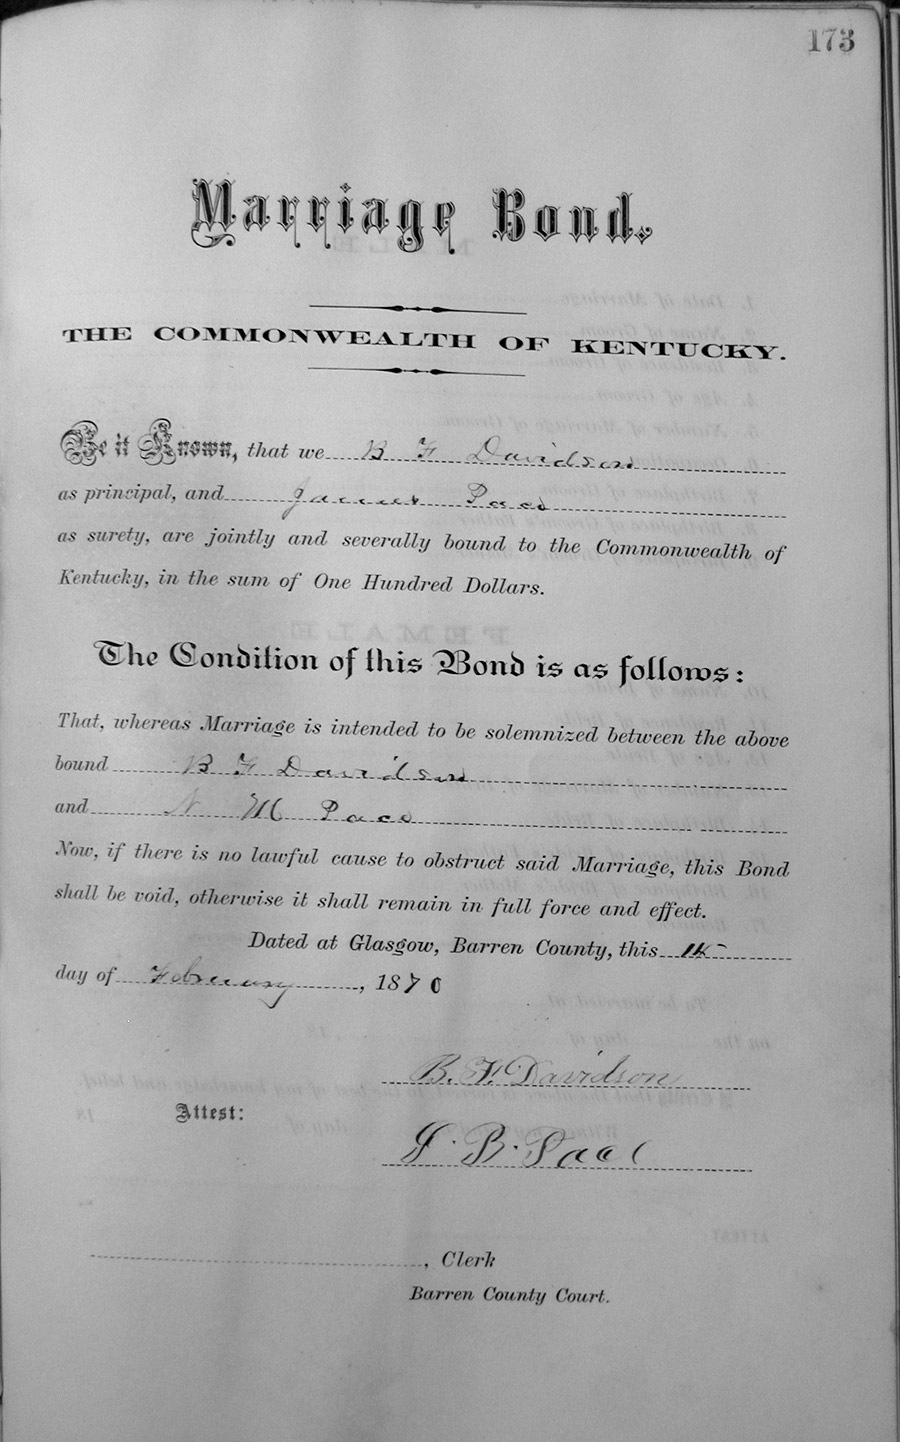 173
Marriage Bond.
THE COMMONWEALTH OF KENTUCKY.
Be it Known, that we B F Davidson
as principal, and James Pace
as surety, are jointly and severally bound to the Commonwealth of
Kentucky, in the sum of One Hundred Dollars.
The Condition of this Bond is as follows:
That, whereas Marriage is intended to be solemnized between the above
bound B F Davidson
and N M Pace
Now, if there is no lawful cause to obstruct said Marriage, this Bond
shall be void, otherwise it shall remain in full force and effect.
Dated at Glasgow, Barren County, this
day of February, 1870
B. F. Davidson
Attest:
J. B. Pace
, Clerk
Barren County Court.